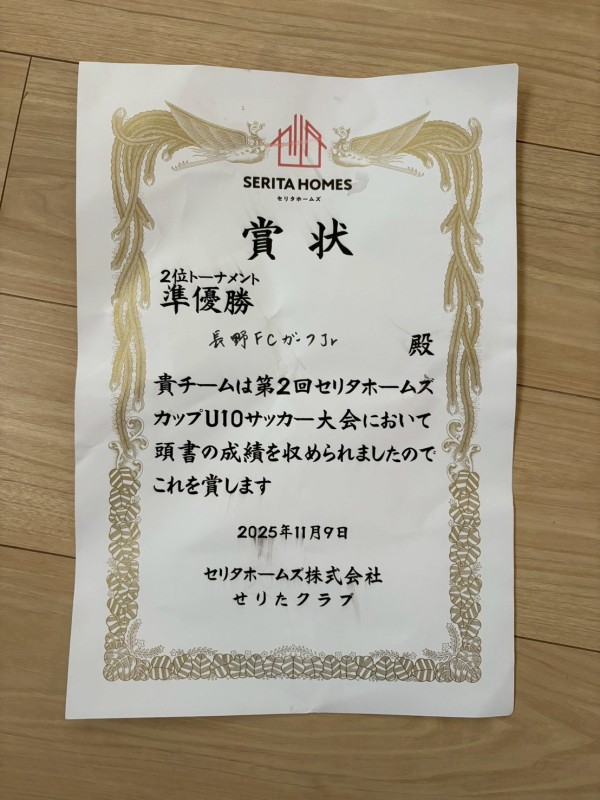 SERITA HOMES
セリタホームズ
賞状
2位トーナメント
準優勝
長野FCガーフJr 殿
貴チームは第2回セリタホームズ
カップU10サッカー大会において
頭書の成績を収められましたので
これを賞します
2025年11月9日
セリタホームズ株式会社
せりたクラブ